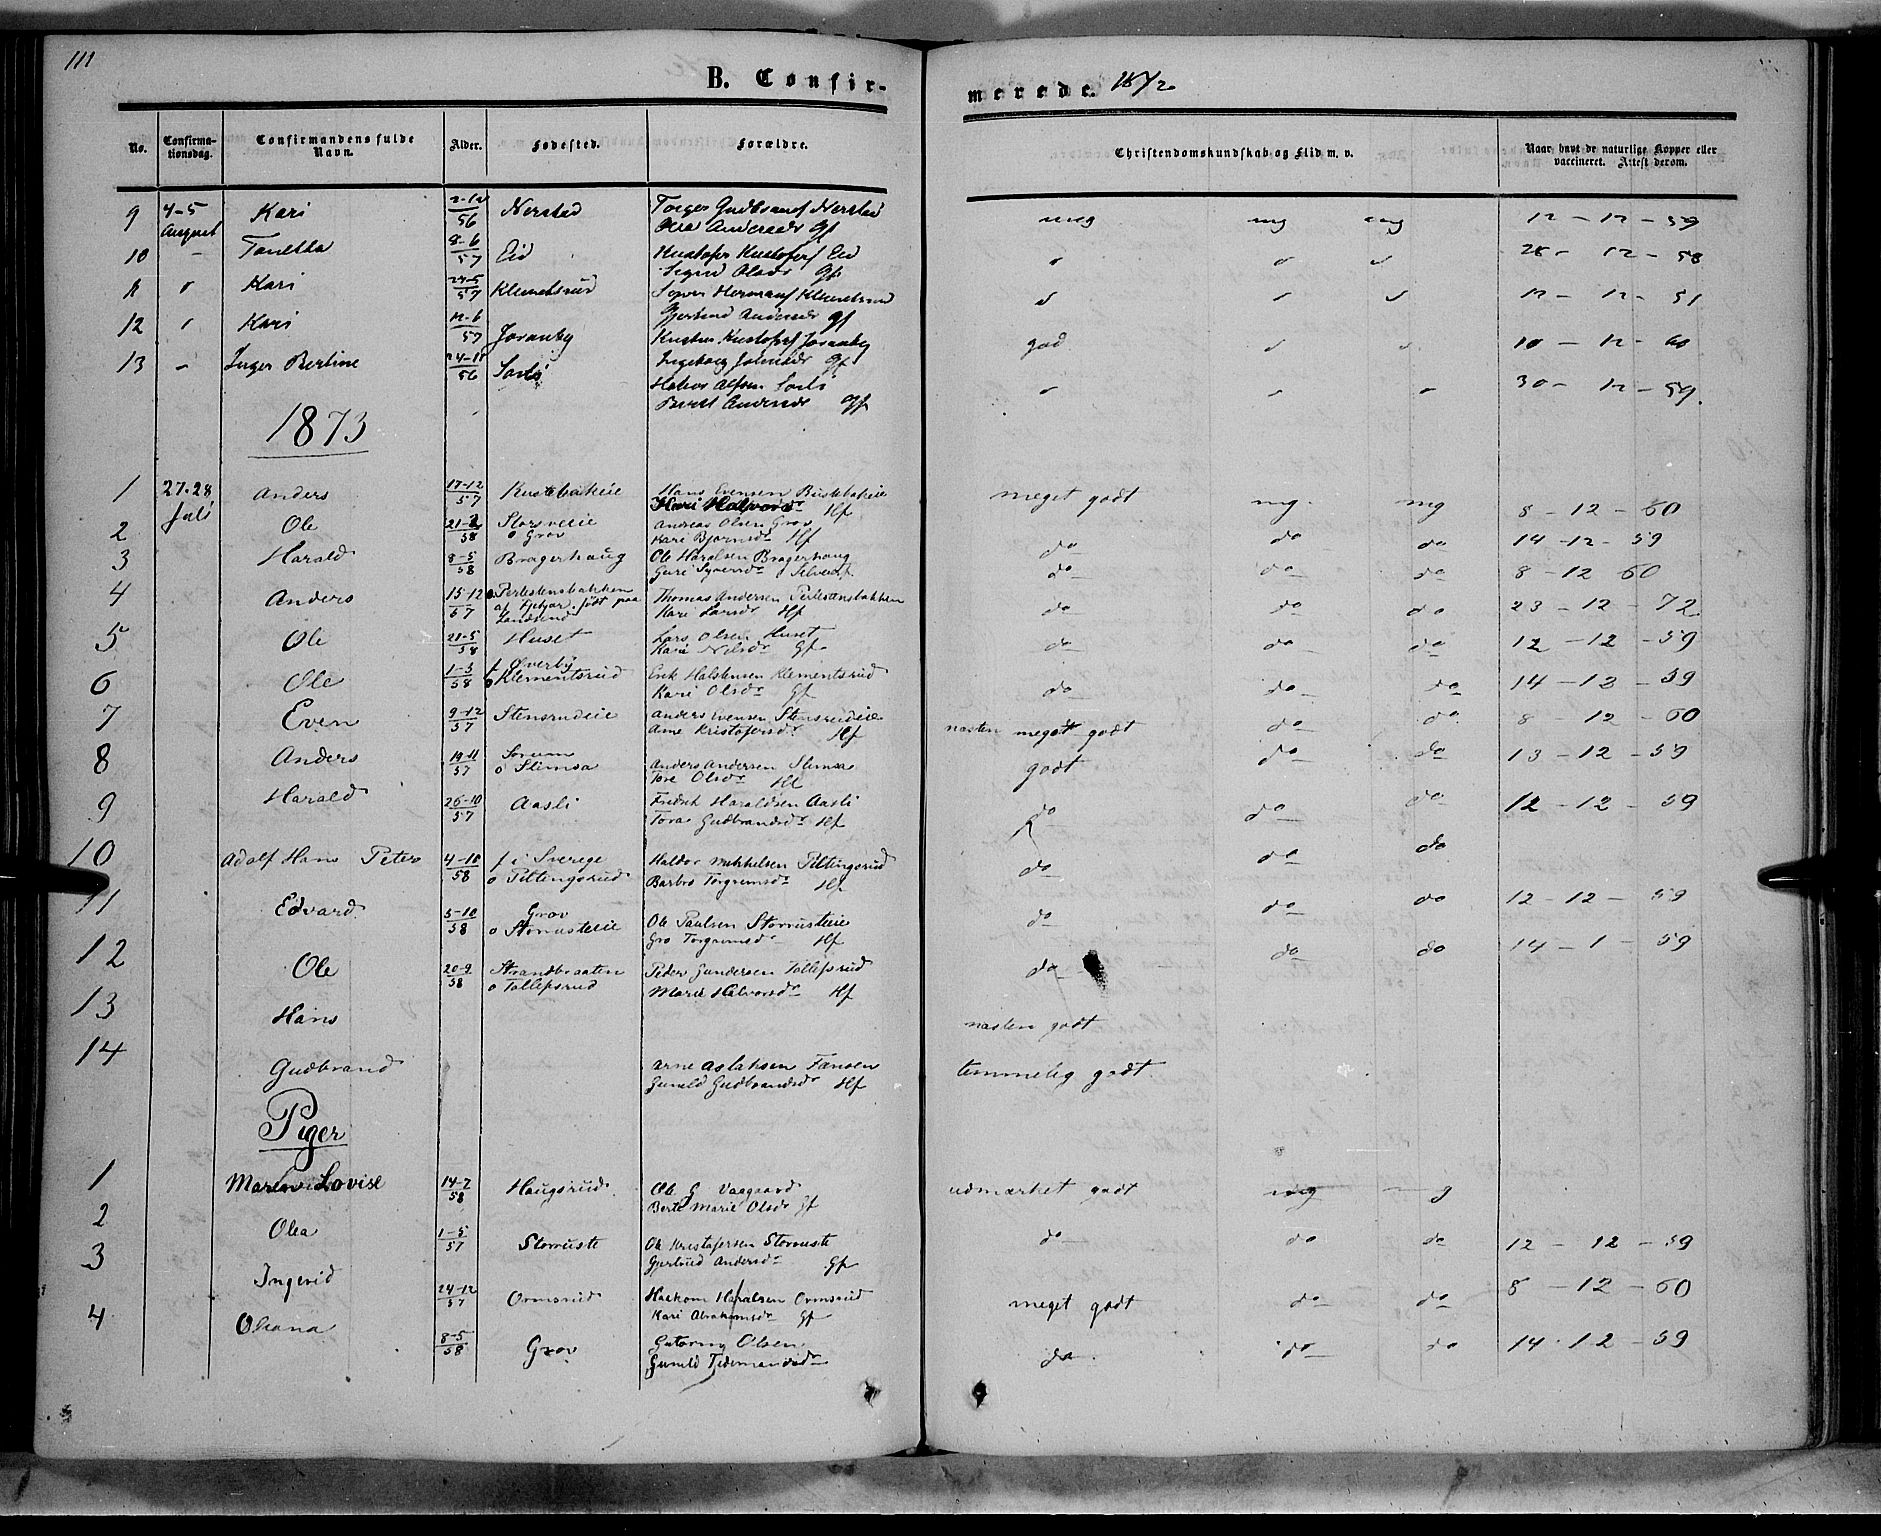 111
B. Confirmerede. 1872
No. Confirmationsdag. Confirmandens fulde Navn. Alder. Fødested. Forældre. Christendomskundskab og Flid m. v. Naar havt de naturlige Kopper eller vaccineret. Attest derom.
9 4-5 August Kari 2-12/56 Nerstad Gudbrands Nerstad Andersdr Gf meg mg mg 12 - 12 - 59
10 - Tonetta 8-6/57 Eid Kristofer Kristofers Eid Sigrid Olsdr Gf 12 - 58
Kari 24-5/57 Klemetsrud Hermans Klemetsrud Gjertrud Andersdr Gf 12 - 12 - 51
12 Kari 12-6/57 Joranby Kristen Kristofers Joranby Ingeborg Gf god 10 - 12 - 60
13 - Inger Bertine 56 Sorli Alfsen Sorli Berit Andersdr Gf 30 - 12 - 59.
1873
1 27.28 Juli Anders 17-12/57 Hans Evensen Kari Halvorsdr Hf meget godt mg. mg 8 - 12 - 60
2 Ole 21-2/58 o Grov Andreas Olsen Grov Kari Bjornsdr Hf do do do 14 - 12 - 59
3 Harald 8-5/58 Bragerhaug Ole Haralsen Bragerhaug Guri do do do 8 - 12 60
4 Anders 15-12/57 Perlestensbakken født paa Thomas Andersen Perlestensbakken Kari Larsdr Hf do do do 23 - 12 - 72
5 Ole 21-5/58 Huset Lars Olsen Huset Kari Nilsdr Gf do do do 12 - 12 - 59
6 Ole 1-3/58 f Øverby o Klementsrud Erik Halstensen Klementsrud Kari Olsdr Gf do do do 14 - 12 - 59
7 Even 9-12/57 Stensrudeie Anders Evensen Stensrudeie Arne Kristofersdr Hf næsten meget godt do do 8 - 12 - 60
8 Anders 19-11/57 Sorum o Slimsa Anders Andersen Slimsa Tore Olsdr Hf godt do do 13 - 12 - 59
9 Harald 26-10/57 Aasli Fredrik Haraldsen Aasli Tora Gudbrandsdr Hf do do do 12 - 12 - 59
10 Adolf Hans Peter 4-10/58 f i Sverege o Piltingsrud Haldor Mikkelsen Piltingsrud Barbro Torgrimsdr Hf do do do
11 Edvard 5-10/58 Grov o Storrusteeie Ole Paulsen Storrusteie Gro Torgrimsdr Hf do do do 12 - 12 - 59
12 Ole 20-9/58 Strandbraaten o Tollefsrud Peder Gundersen Tollefsrud Marie Halvorsdr Hf do do do 14 - 1 - 59
13 Hans næsten godt
14 Gudbrand Arne Aslaksen Fønsen Gunild Gudbrandsdr Hf temmelig godt
Piger
1 Maren Lovise 14-7/58 Haugsrud Ole G Vaagaard Berte Marie Olsdr Gf udmærket godt mg mg
2 Olea 1-5/57 Storruste Ole Kristofersen Storruste Gjertrud Andersdr Gf do do do 12 - 12 - 59
3 Ingerid 24-12/57 Ormsrud Haakon Haralsen Ormsrud Kari Abrahamsdr Gf meget godt do do 8 - 12 - 60
4 Oleana 8-5/58 Grov Guttorm Olsen Gunild Tidemandsdr do do do 14 - 12 - 59